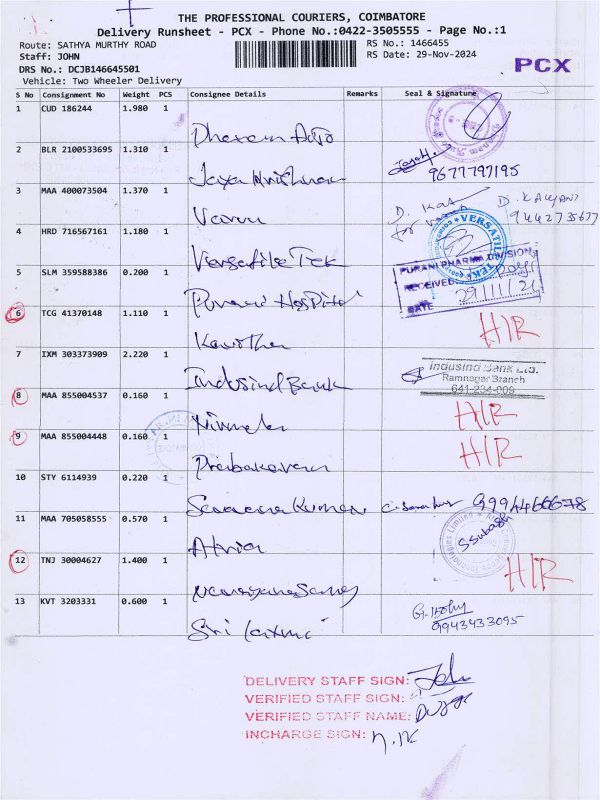 THE PROFESSIONAL COURIERS, COIMBATORE
Delivery Runsheet - PCX - Phone No.:0422-3505555 - Page No.:1
Route: SATHYA MURTHY ROAD
RS No.: 1466455
Staff: JOHN
RS Date: 29-Nov-2024
DRS No.: DCJB146645501
PCX
Vehicle: Two Wheeler Delivery
S No Consignment No Weight PCS Consignee Details Remarks Seal & Signature
1 CUD 186244 1.980 1 Dharani Auto
2 BLR 2100533695 1.310 1 Jaya Krishnan 9677797195
3 MAA 400073504 1.370 1 Vannu D. Kal for D. KALYANI 9442735677
4 HRD 716567161 1.180 1 Versatile Tek VERSATILE TEK
5 SLM 359588386 0.200 1 Purani Hospital PURANI PHARMA DIVISION
RECEIVED
DATE 29/11/24
6 TCG 41370148 1.110 1 Kavitha H/R
7 IXM 303373909 2.220 1 Indusind Bank Indusind Bank Ltd.
Ramnagar Branch
641-234-009
8 MAA 855004537 0.160 1 Nirmala H/R
9 MAA 855004448 0.160 1 Prabakaran H/R
10 STY 6114939 0.220 1 Saravana Kumar 9994466678
11 MAA 705058555 0.570 1 Atria S Subash
12 TNJ 30004627 1.400 1 Narayanasamy H/R
13 KVT 3203331 0.600 1 Sri Laxmi 9943433095
DELIVERY STAFF SIGN: John
VERIFIED STAFF SIGN:
VERIFIED STAFF NAME:
INCHARGE SIGN: